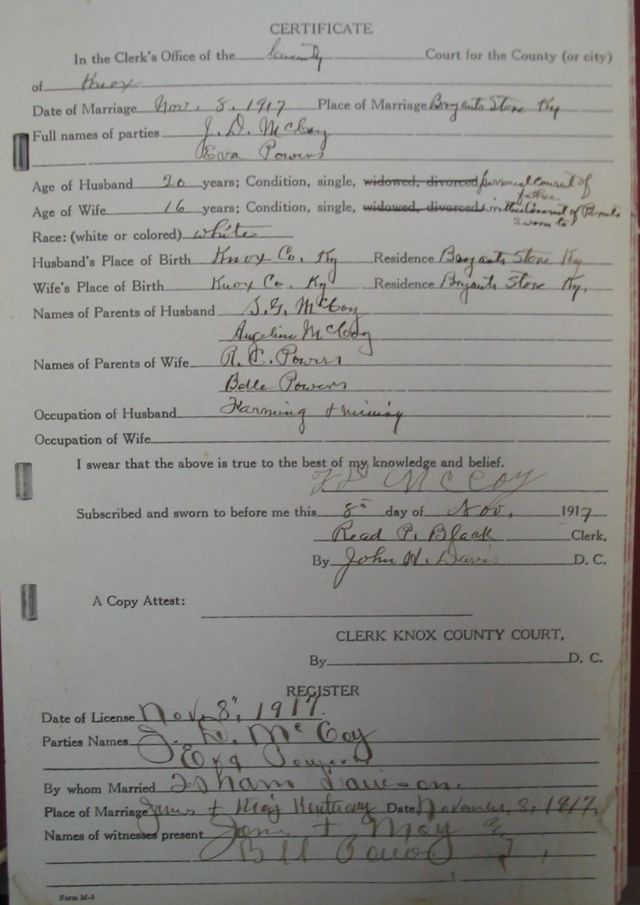 CERTIFICATE
In the Clerk's Office of the County Court for the County (or city)
of Knox
Date of Marriage Nov. 8, 1917 Place of Marriage Bryants Store Ky
Full names of parties J. D. McCoy
Eva Powers
Age of Husband 20 years; Condition, single, widowed, divorced personal consent of
father
Age of Wife 16 years; Condition, single, widowed, divorced, written consent of Parents
sworn to
Race: (white or colored) white
Husband's Place of Birth Knox Co. Ky Residence Bryants Store Ky
Wife's Place of Birth Knox Co. Ky Residence Bryants Store Ky.
Names of Parents of Husband S. G. McCoy
Angeline McCoy
Names of Parents of Wife R. C. Powers
Belle Powers
Occupation of Husband Farming & mining
Occupation of Wife
I swear that the above is true to the best of my knowledge and belief.
McCoy
Subscribed and sworn to before me this 8th day of Nov. 1917
Read P. Black Clerk,
By John H. Davis D. C.
A Copy Attest:
CLERK KNOX COUNTY COURT,
By D. C.
REGISTER
Date of License Nov. 8, 1917.
Parties Names J. D. McCoy
Eva Powers
By whom Married Isham Lawson.
Place of Marriage Kentucky Date November, 8, 1917
Names of witnesses present
Form M-3